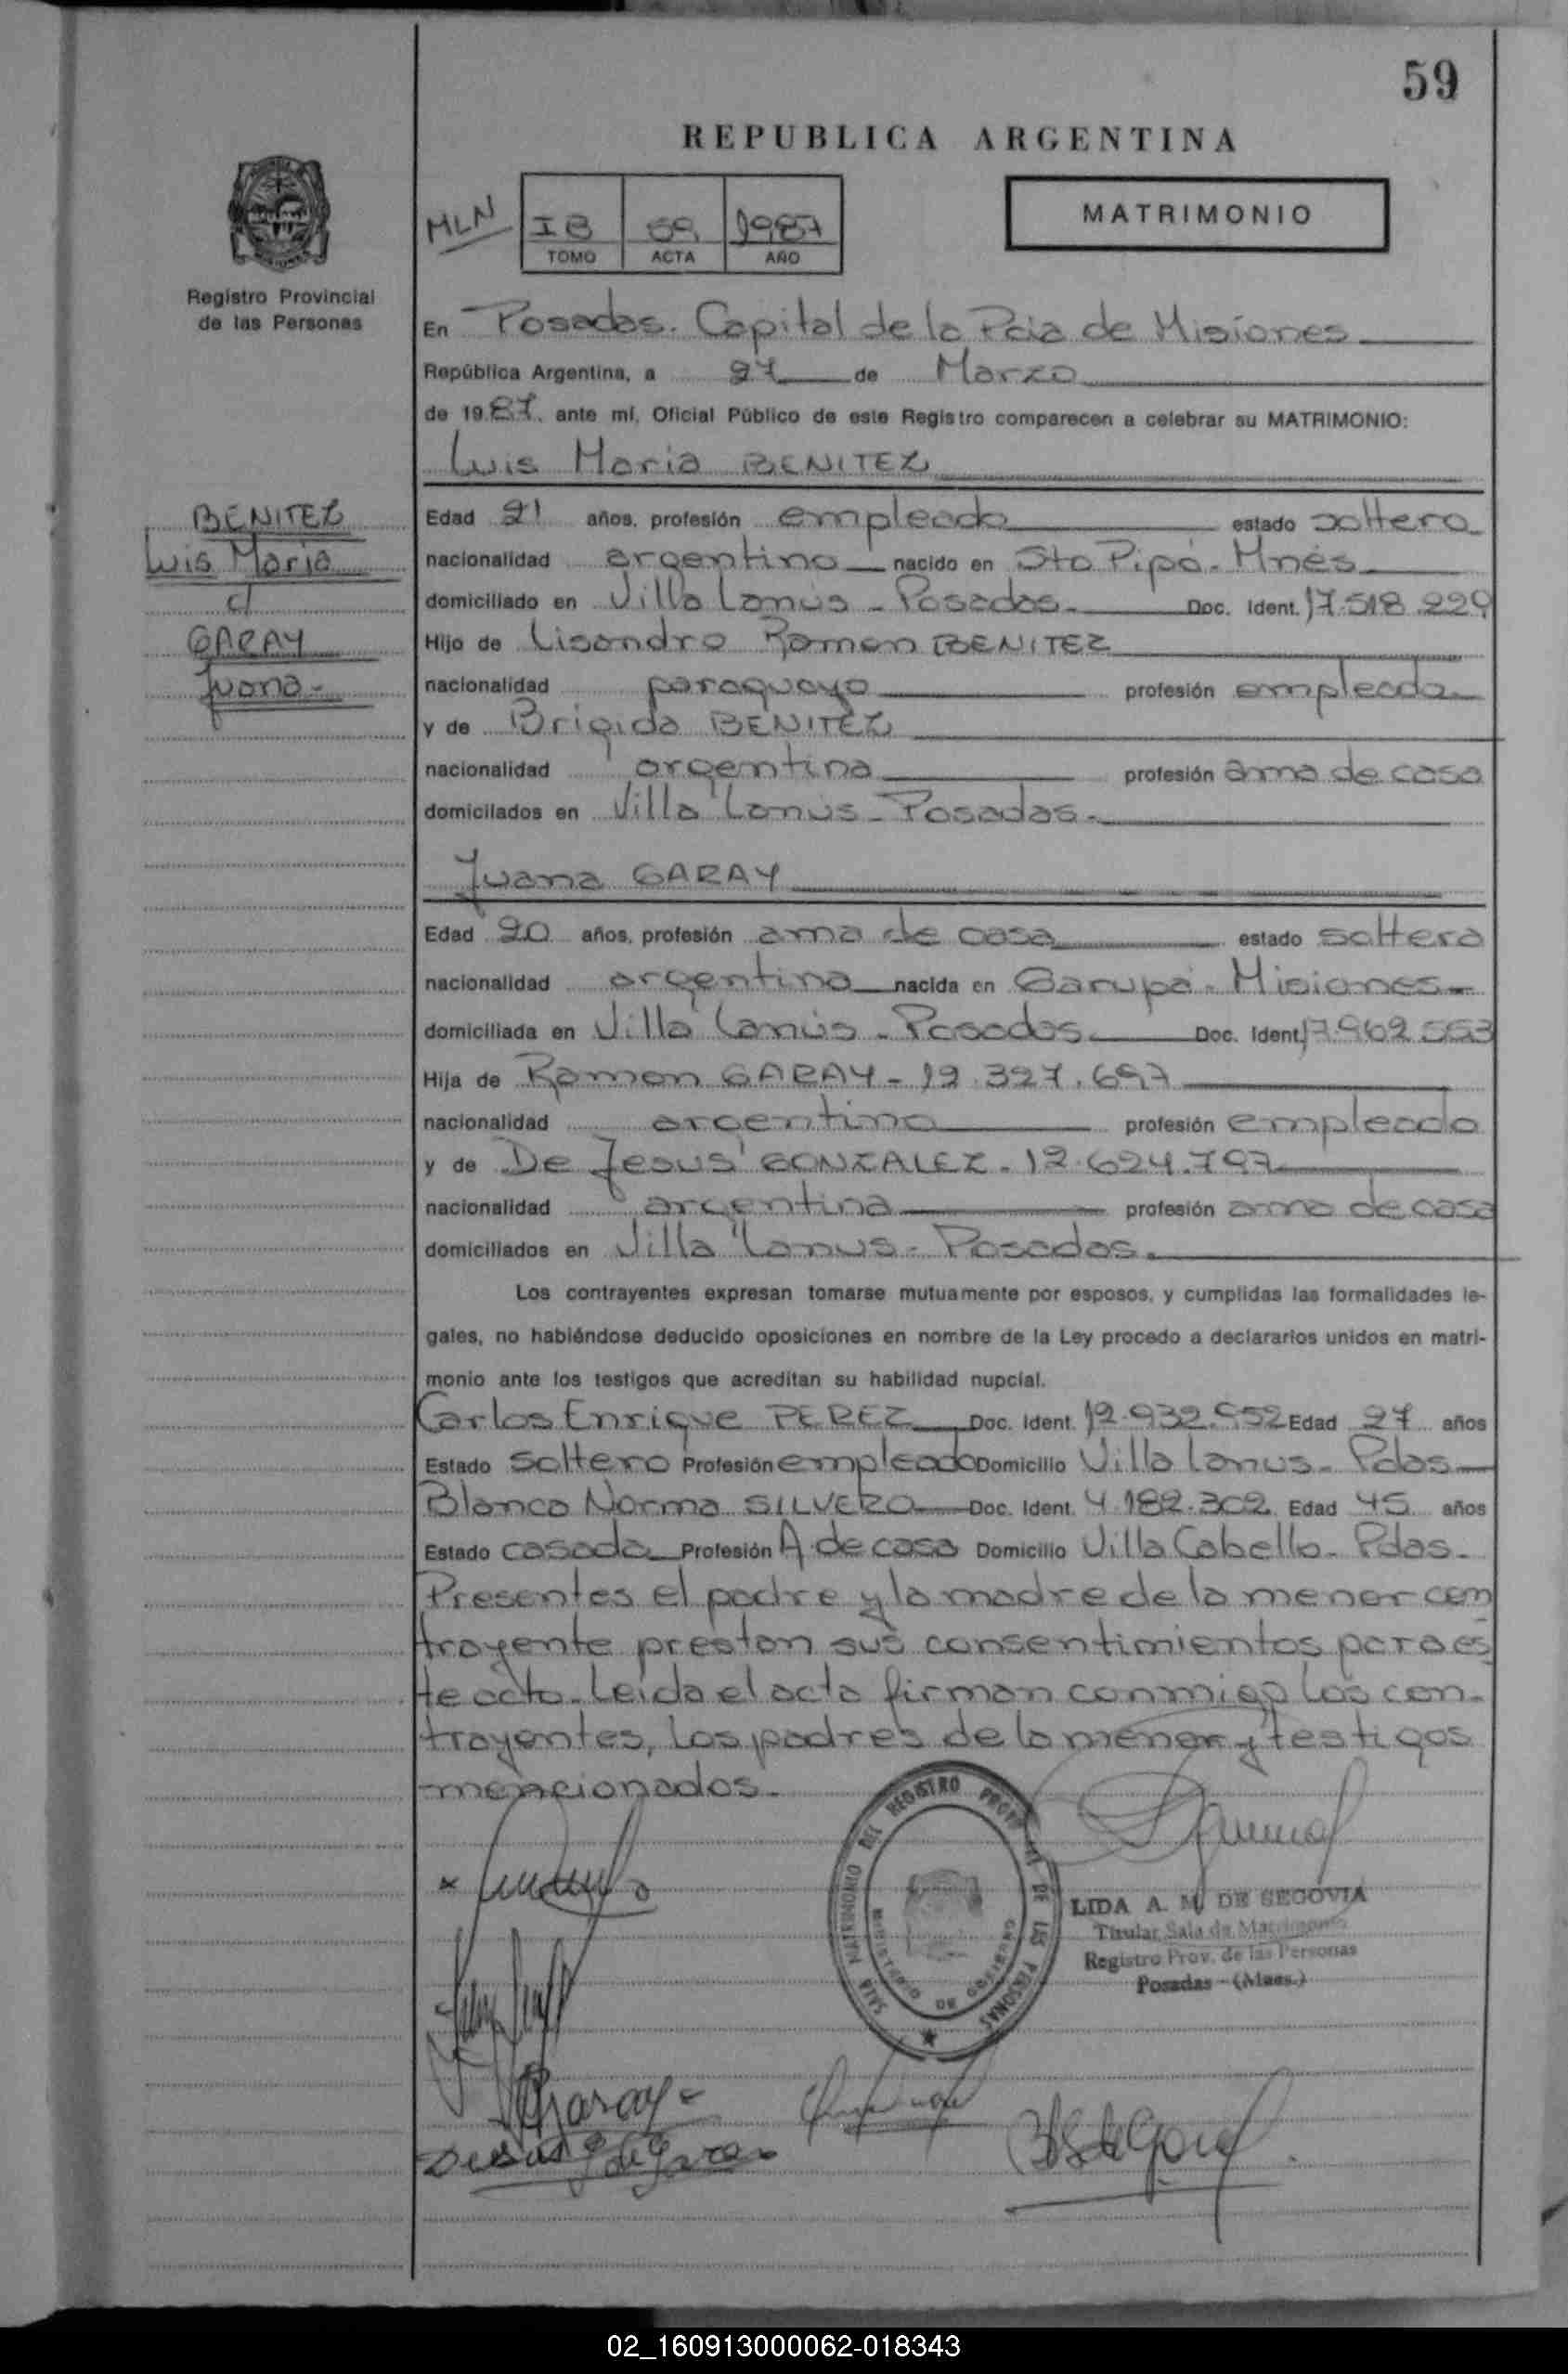 59
REPUBLICA ARGENTINA
MLN
I B 59 1987
TOMO ACTA AÑO
MATRIMONIO
Registro Provincial
de las Personas
En Posadas. Capital de la Pcia de Misiones
República Argentina, a 27 de Marzo
de 19 87. ante mí, Oficial Público de este Registro comparecen a celebrar su MATRIMONIO:
Luis Maria BENITEZ
BENITEZ
Luis Maria
c/
GARAY
Juana-
Edad 21 años, profesión empleado estado soltero
nacionalidad argentino nacido en Sto Pipó- Mnes
domiciliado en Villa Lanus - Posadas- Doc. Ident. 17.518.229
Hijo de Lisandro Ramon BENITEZ
nacionalidad paraguayo profesión empleado
y de Brigida BENITEZ
nacionalidad argentina profesión ama de casa
domicilados en Villa Lanús - Posadas-
Juana GARAY
Edad 20 años, profesión ama de casa estado soltera
nacionalidad argentina nacida en Garupá- Misiones-
domiciliada en Villa Lanús - Posadas Doc. Ident. 17.962.553
Hija de Ramon GARAY - 12.327.697
nacionalidad argentino profesión empleado
y de De Jesus GONZALEZ - 12.624.797
nacionalidad argentina profesión ama de casa
domiciliados en Villa Lanus - Posadas.
Los contrayentes expresan tomarse mutuamente por esposos, y cumplidas las formalidades le-
gales, no habiéndose deducido oposiciones en nombre de la Ley procedo a declararlos unidos en matri-
monio ante los testigos que acreditan su habilidad nupcial.
Carlos Enrique PEREZ Doc. Ident. 12.932.952 Edad 27 años
Estado soltero Profesión empleado Domicilio Villa Lanus- Pdas
Blanca Norma SILVERO Doc. Ident. 4.182.302 Edad 45 años
Estado casada Profesión A. de casa Domicilio Villa Cabello- Pdas.
Presentes el padre y la madre de la menor con
trayente prestan sus consentimientos para es
te acto. Leida el acta firman conmigo los con-
trayentes, los padres de la menor y testigos
mencionados-
SALA MATRIMONIO DEL REGISTRO PROVINCIAL DE LAS PERSONAS
MINISTERIO DE GOBIERNO
LIDA A. M. DE SEGOVIA
Titular Sala de Matrimonio
Registro Prov. de las Personas
Posadas - (Mnes.)
Garay-
02_160913000062-018343